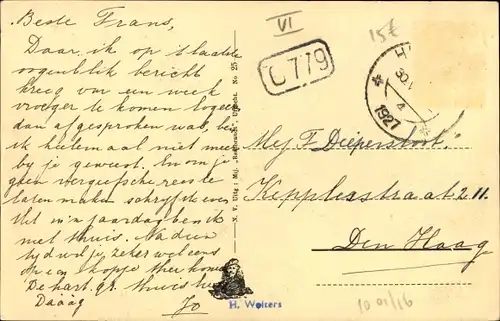 Beste Frans,
Daar ik op 't laatste
oogenblik bericht
kreeg om een week
vroeger te komen logeeren
dan afgesproken was, ben
ik heelemaal niet meer
bij je geweest. En om je
geen vergeefsche reis te
laten maken schrijf ik even
Met m'n jaardag ben ik
niet thuis. Nadien
tyd wil je zeker wel eens
op een kopje thee komen
De hart. gr. thuis
Daaag
Jo
VI
C 779
15€
1927
Mej F. Diepershoek.
Kepplerstraat 211.
Den Haag
N. V. Uitg: Mij. "Rembrandt", Utrecht. No 25
H. Wolters
10 01/16